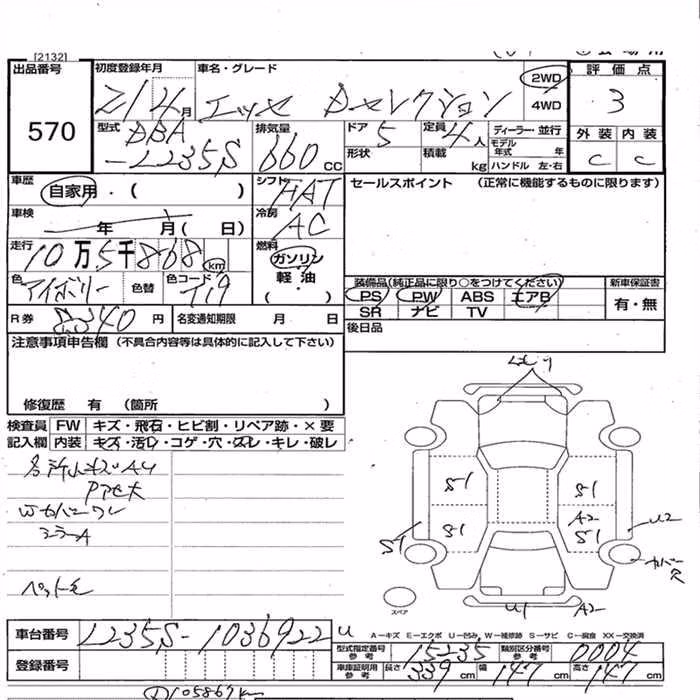 [2132]
出品番号 初度登録年月 車名・グレード 2WD 評価点
570 21 4月 エッセ Dセレクション 4WD 3
型式 DBA-L235S 排気量 660 CC ドア 5 定員 4人 ディーラー・並行 外装 内装
形状 積載 kg モデル年式 年 ハンドル 左・右 C C
車歴 自家用・( ) シフト FAT セールスポイント (正常に機能するものに限ります)
車検 年 月( 日) 冷房 AC
走行 10万5千868km 燃料 ガソリン・軽油
色 アイボリー 色替 色コード T19 ( ・ ) 装備品(純正品に限り○をつけてください) 新車保証書
PS PW ABS エアB 有・無
R券 円 名変通知期限 月 日 SR ナビ TV
後日品
注意事項申告欄 (不具合内容等は具体的に記入して下さい)
修復歴 有 (箇所 )
検査員 FW キズ・飛石・ヒビ割・リペア跡・×要
記入欄 内装 キズ・汚レ・コゲ・穴・スレ・キレ・破レ
各所小キズAU
Wカバーワレ
ミラーA
ペット毛
S1 S1
S1 A2 S1 U2
S1 カバー欠
U1 A2
スペア
車台番号 L235S-1036922 U
A-キズ E-エクボ U-凹み W-補修跡 S-サビ C-腐食 XX-交換済
型式指定番号 参考 15235 類別区分番号 参考 0004
登録番号 車庫証明用 参考 長さ 339 cm 幅 147 cm 高さ 147 cm
105869km